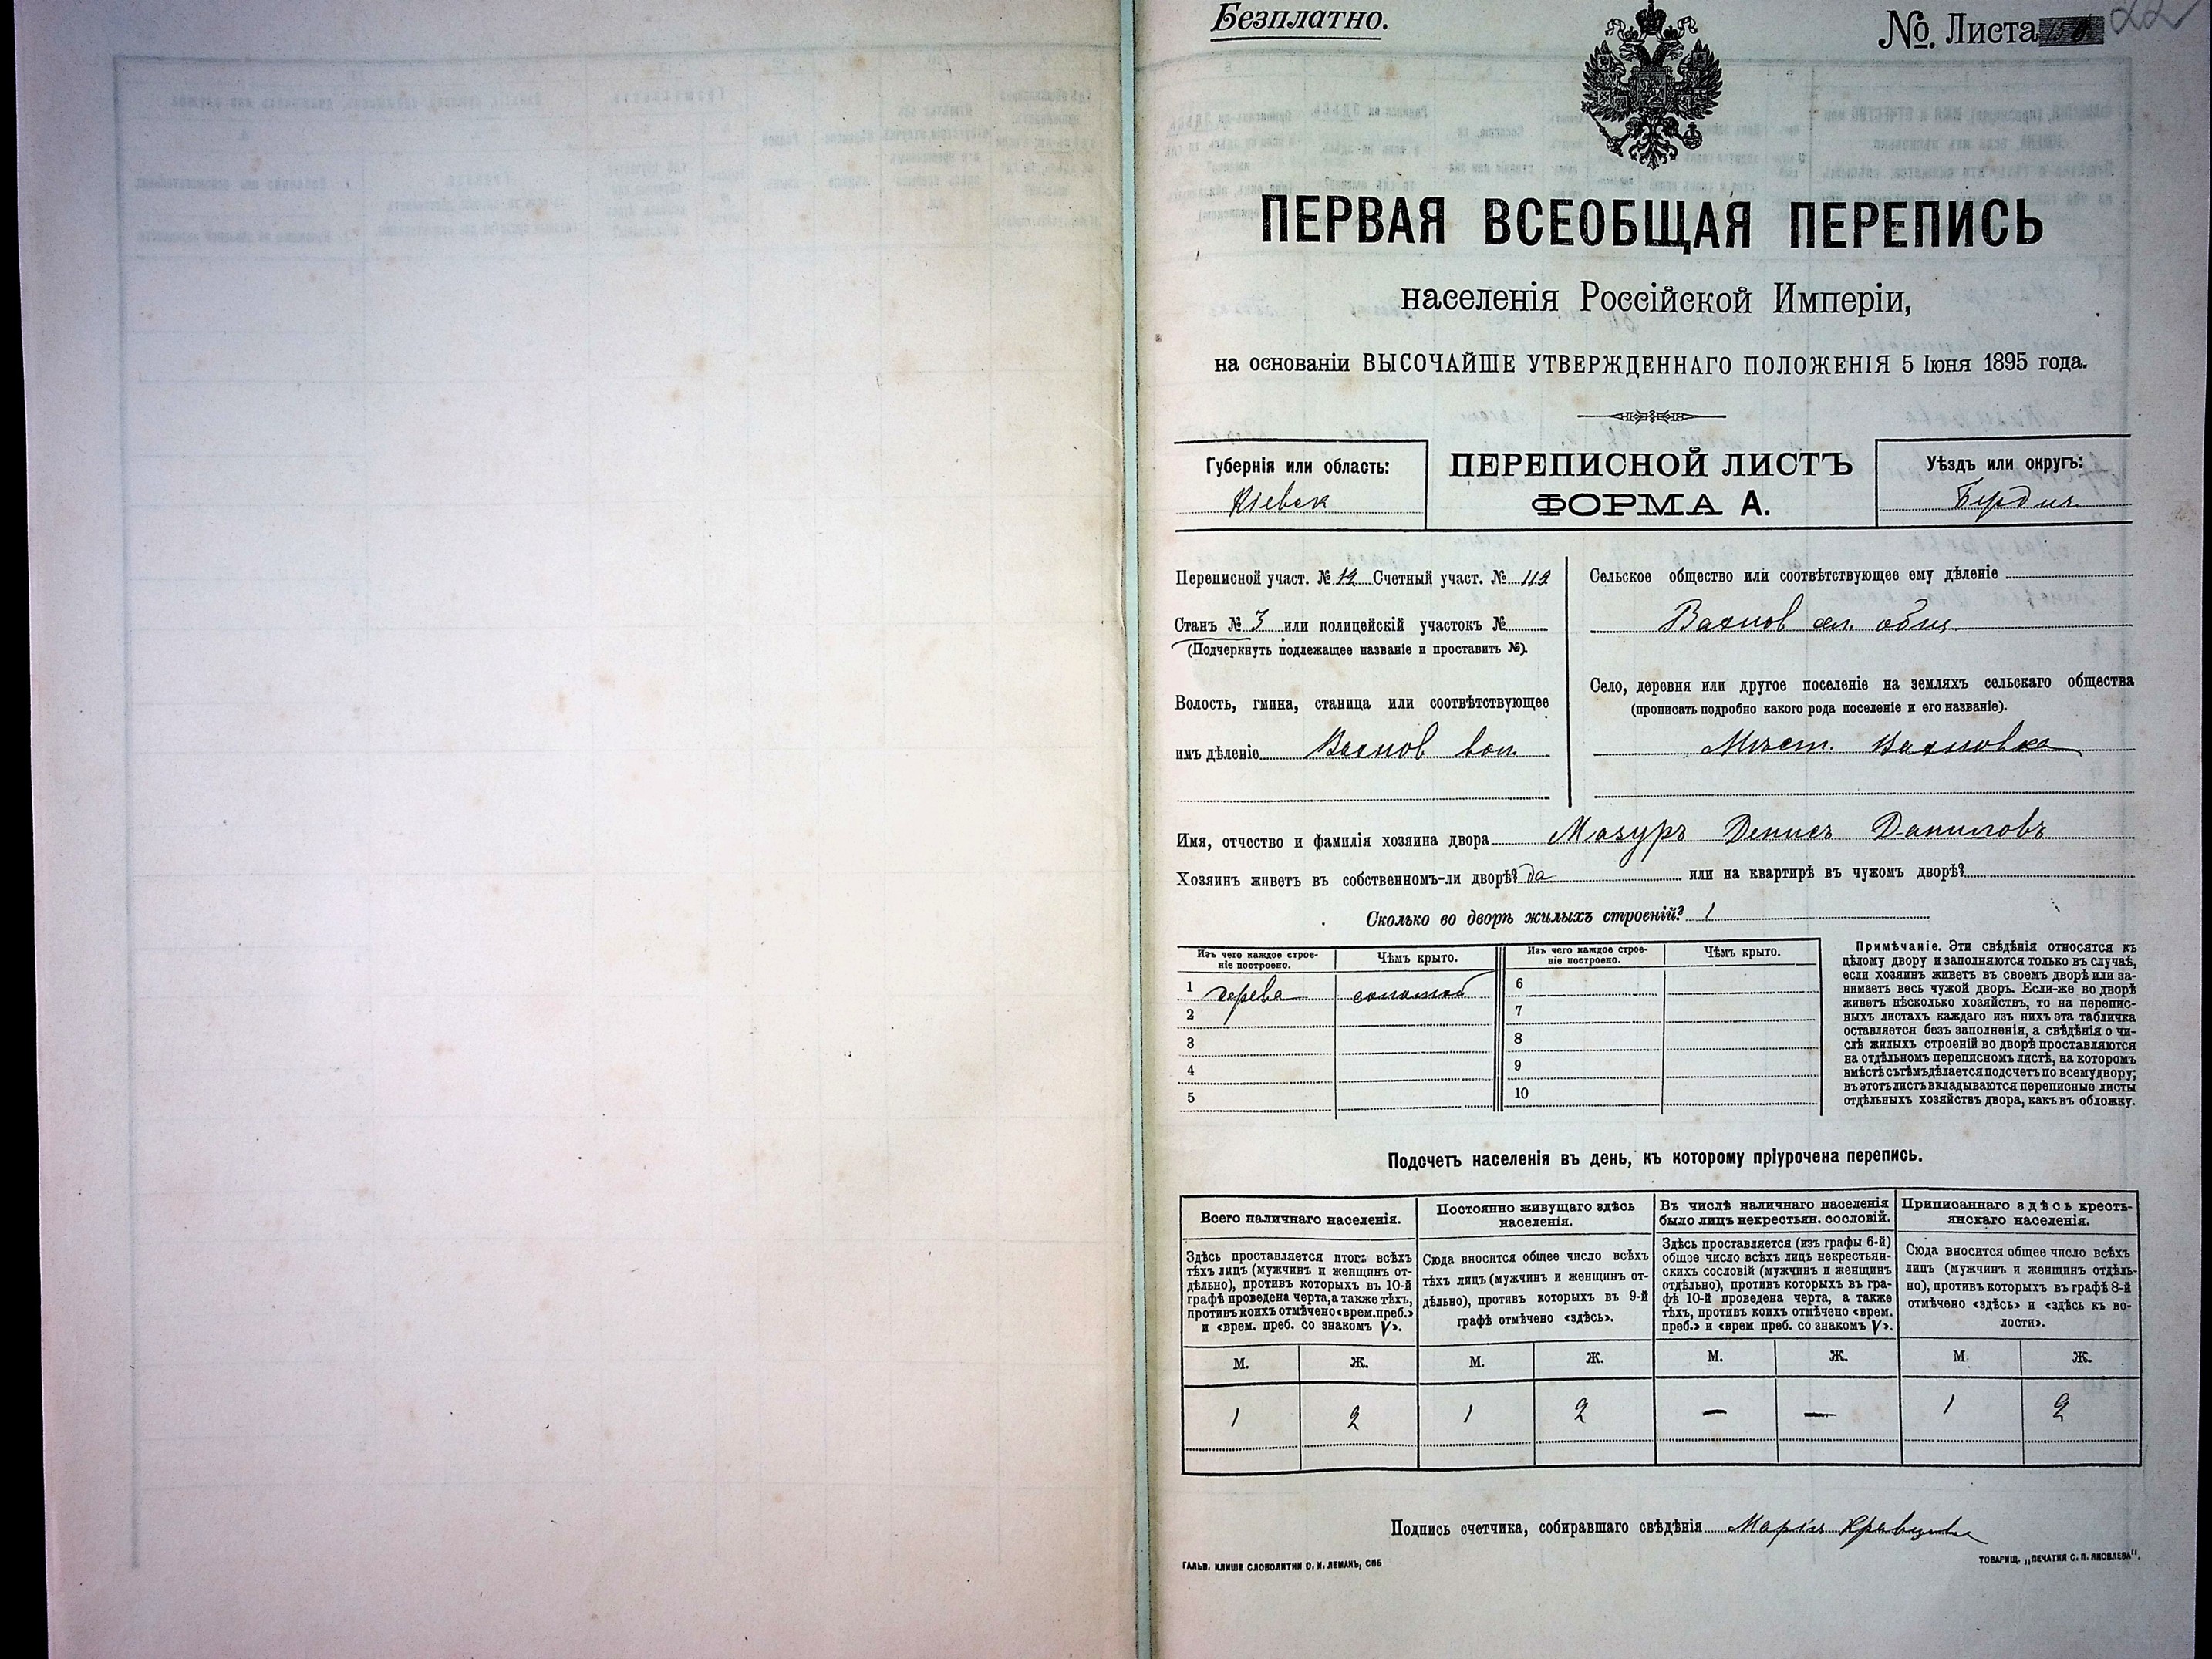 Безплатно.
№. Листа
ПЕРВАЯ ВСЕОБЩАЯ ПЕРЕПИСЬ
населенія Россійской Имперіи,
на основаніи ВЫСОЧАЙШЕ УТВЕРЖДЕННАГО ПОЛОЖЕНІЯ 5 Іюня 1895 года.
Губернія или область:
Кіевск
ПЕРЕПИСНОЙ ЛИСТЪ
ФОРМА А.
Уѣздъ или округъ:
Бердич
Переписной участ. № 12 Счетный участ. № 112
Станъ № 3 или полицейскій участокъ №
(Подчеркнуть подлежащее названіе и проставить №).
Волость, гмина, станица или соотвѣтствующее
имъ дѣленіе Вахнов вол.
Сельское общество или соотвѣтствующее ему дѣленіе
Вахнов сел. общ.
Село, деревня или другое поселеніе на земляхъ сельскаго общества
(прописать подробно какого рода поселеніе и его названіе).
Мѣст. Вахновка
Имя, отчество и фамилія хозяина двора Мазуръ Денисъ Даниловъ
Хозяинъ живетъ въ собственномъ-ли дворѣ? да или на квартирѣ въ чужомъ дворѣ?
Сколько во дворѣ жилыхъ строеній? 1
Изъ чего каждое строе-
ніе построено.
Чѣмъ крыто.
Изъ чего каждое строе-
ніе построено.
Чѣмъ крыто.
1 дерева соломой 6
2 7
3 8
4 9
5 10
Примѣчаніе. Эти свѣдѣнія относятся къ
цѣлому двору и заполняются только въ случаѣ,
если хозяинъ живетъ въ своемъ дворѣ или за-
нимаетъ весь чужой дворъ. Если-же во дворѣ
живетъ нѣсколько хозяйствъ, то на перепис-
ныхъ листахъ каждаго изъ нихъ эта табличка
оставляется безъ заполненія, а свѣдѣнія о чи-
слѣ жилыхъ строеній во дворѣ проставляются
на отдѣльномъ переписномъ листѣ, на которомъ
вмѣстѣ съ тѣмъ дѣлается подсчетъ по всему двору;
въ этотъ листъ вкладываются переписные листы
отдѣльныхъ хозяйствъ двора, какъ въ обложку.
Подсчетъ населенія въ день, къ которому пріурочена перепись.
Всего наличнаго населенія.
Здѣсь проставляется итогъ всѣхъ
тѣхъ лицъ (мужчинъ и женщинъ от-
дѣльно), противъ которыхъ въ 10-й
графѣ проведена черта, а также тѣхъ,
противъ коихъ отмѣчено «врем. преб.»
и «врем. преб. со знакомъ V».
Постоянно живущаго здѣсь
населенія.
Сюда вносится общее число всѣхъ
тѣхъ лицъ (мужчинъ и женщинъ от-
дѣльно), противъ которыхъ въ 9-й
графѣ отмѣчено «здѣсь».
Въ числѣ наличнаго населенія
было лицъ некрестьян. сословій.
Здѣсь проставляется (изъ графы 6-й)
общее число всѣхъ лицъ некрестьян-
скихъ сословій (мужчинъ и женщинъ
отдѣльно), противъ которыхъ въ гра-
фѣ 10-й проведена черта, а также
тѣхъ, противъ коихъ отмѣчено «врем.
преб.» и «врем преб. со знакомъ V».
Приписаннаго здѣсь кресть-
янскаго населенія.
Сюда вносится общее число всѣхъ
лицъ (мужчинъ и женщинъ отдѣль-
но), противъ которыхъ въ графѣ 8-й
отмѣчено «здѣсь» и «здѣсь къ во-
лости».
М. Ж. М. Ж. М. Ж. М. Ж.
1 2 1 2 — — 1 2
Подпись счетчика, собиравшаго свѣдѣнія Марія
ГАЛЬВ. КЛИШЕ СЛОВОЛИТНИ О. И. ЛЕМАНЪ, СПБ
ТОВАРИЩ. „ПЕЧАТНЯ С. П. ЯКОВЛЕВА“.